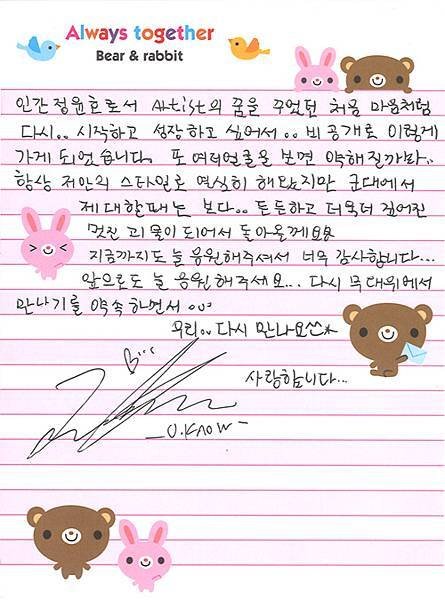 Always together
Bear & rabbit
인간 정윤호로서 Artist의 꿈을 꾸었던 처음 마음처럼
다시.. 시작하고 성장하고 싶어서.. 비공개로 이렇게
가게 되었습니다. 또 여러분들을 보면 약해질까봐..
항상 저만의 스타일로 열심히 해왔지만 군대에서
제대할때는 보다.. 든든하고 더욱더 짙어진
멋진 괴물이 되어서 돌아올께요
지금까지도 늘 응원해주셔서 너무 감사합니다...
앞으로도 늘 응원해주세요... 다시 무대위에서
만나기를 약속하면서
우리.. 다시 만나요
사랑합니다...
U.KNOW